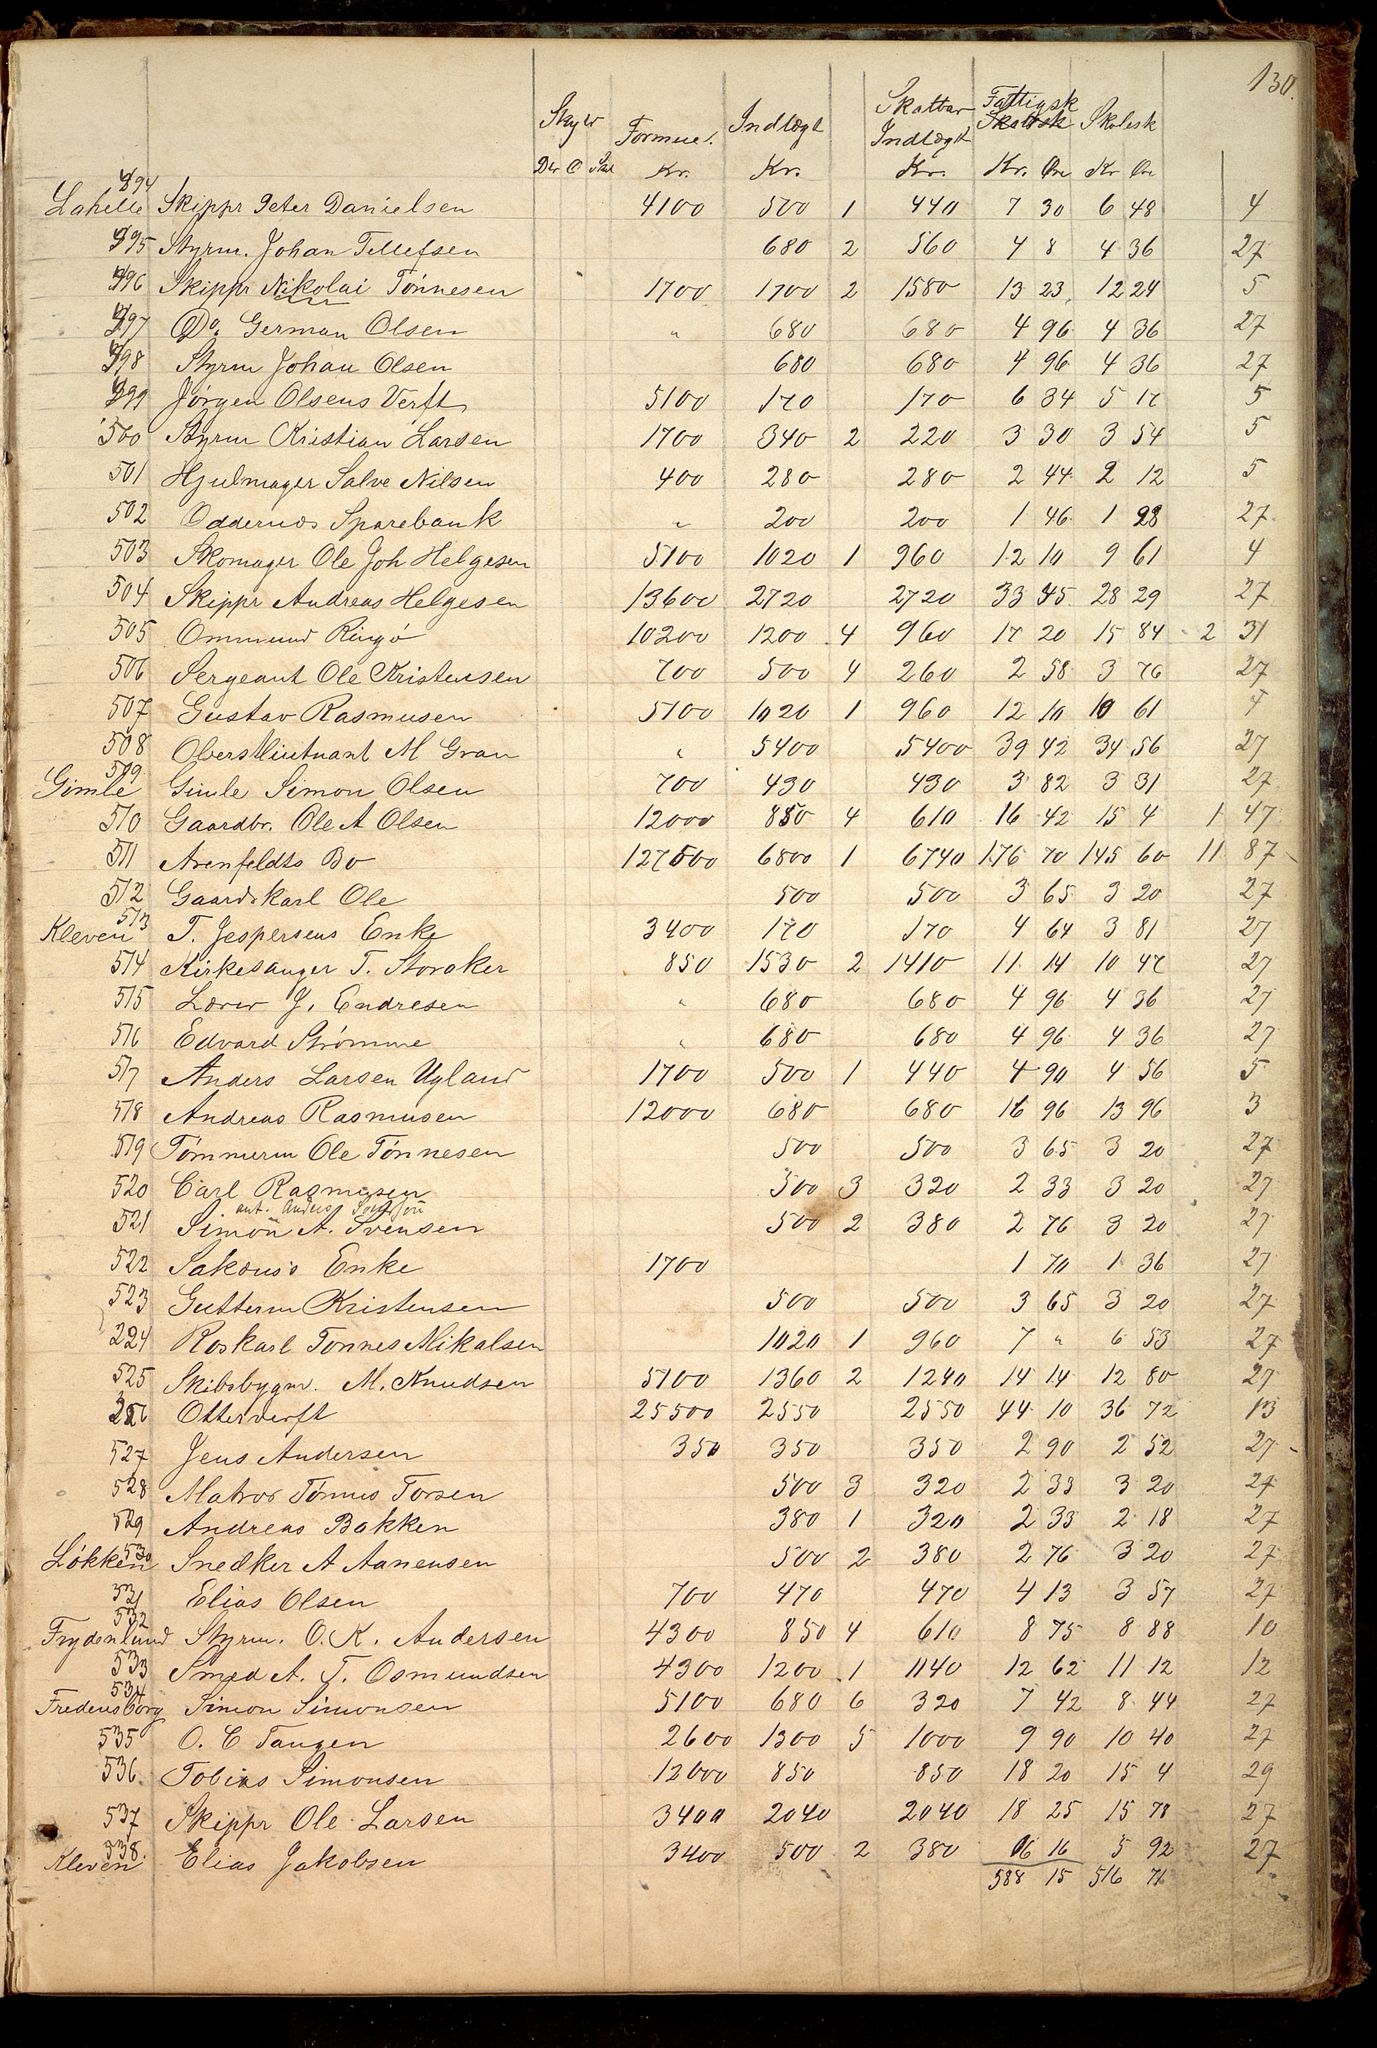 130.
Skyld Formue. Indtægt Skattbar Indtægt Fattigsk Skolesk
Dlr O Sk Kr. Kr. Kr. Kr. Øre Kr Øre
Lahelle 494 Skippr Peter Danielsen 4100 500 1 440 7 30 6 48 4
495 Styrm. Johan Tellefsen 680 2 560 4 8 4 36 27
496 Skippr Nikolai Tönnesen 1700 1700 2 1580 13 23 12 24 5
497 Do. German Olsen " 680 680 4 96 4 36 27
498 Styrm Johan Olsen 680 680 4 96 4 36 27
499 Jörgen Olsens Verft 5100 170 170 6 34 5 17 5
500 Styrm Kristian Larsen 1700 340 2 220 3 30 3 54 5
501 Hjulmager Salve Nilsen 400 280 280 2 44 2 12 5
502 Oddernes Sparebank " 200 200 1 46 1 28 27
503 Skomager Ole Joh Helgesen 5100 1020 1 960 12 10 9 61 4
504 Skippr Andreas Helgesen 13600 2720 2720 33 45 28 29 27
505 Ommund Ringö 10200 1200 4 960 17 20 15 84 2 31
506 Sergeant Ole Kristensen 700 500 4 260 2 58 3 76 27
507 Gustav Rasmusen 5100 1020 1 960 12 10 10 61 4
508 Oberstliutnant M Gran " 5400 5400 39 42 34 56 27
Gimle 509 Gimle Simon Olsen 700 430 430 3 82 3 31 27
510 Gaardbr. Ole A Olsen 12000 850 4 610 16 42 15 4 1 47
511 Arenfeldts Bo 127500 6800 1 6740 176 70 145 60 11 87
512 Gaardskarl Ole 500 500 3 65 3 20 27
Kleven 513 T. Jespersens Enke 3400 170 170 4 64 3 81 27
514 Kirkesanger T. Storaker 850 1530 2 1410 11 14 10 47 27
515 Lærer J. Endresen " 680 680 4 96 4 36 27
516 Edvard Strømme " 680 680 4 96 4 36 27
517 Anders Larsen Ugland 1700 500 1 440 4 90 4 56 5
518 Andreas Rasmusen 12000 680 680 16 96 13 96 3
519 Tömmerm Ole Tönnesen 500 500 3 65 3 20 27
520 Carl Rasmusen 500 3 320 2 33 3 20 27
521 Simon A. Svensen 500 2 380 2 76 3 20 27
522 Sakæus's Enke 1700 1 70 1 36 27
523 Gutterm Kristensen 500 500 3 65 3 20 27
224 Roskarl Tonnes Mikalsen 1020 1 960 7 " 6 53 27
525 Skibsbygm. M. Knudsen 5100 1360 2 1240 14 14 12 80 27
526 Otterverft 25500 2550 2550 44 10 36 72 13
527 Jens Andersen 350 350 350 2 90 2 52 27
528 Matros Tönnes Torsen 500 3 320 2 33 3 20 27
529 Andreas Bakken 380 1 320 2 33 2 18 27
Lökken 530 Snedker A Aanensen 500 2 380 2 76 3 20 27
531 Elias Olsen 700 470 470 4 13 3 57 27
Frydenlund 532 Styrm. O. K. Andersen 4300 850 4 610 8 75 8 88 10
533 Smed A. T. Osmundsen 4300 1200 1 1140 12 62 11 12 12
Fredensborg 534 Simon Simonsen 5100 680 6 320 7 42 8 44 27
535 O. C Tangen 2600 1300 5 1000 9 90 10 40 27
536 Tobias Simonsen 12000 850 850 18 20 15 4 29
537 Skippr Ole Larsen 3400 2040 2040 18 25 15 78 27
Kleven 538. Elias Jakobsen 3400 500 2 380 6 16 5 92 27
588 15 516 71